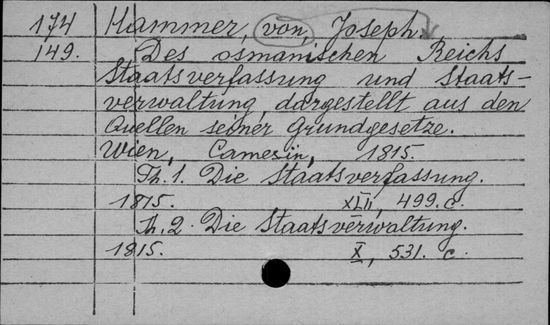 174 Hammer, von, Joseph.
149. Des osmanischen Reichs
Staatsverfassung und Staats-
verwaltung, dargestellt aus den
Quellen seiner Grundgesetze.
Wien, Camesin, 1815.
Th. 1. Die Staatsverfassung.
1815. XLII, 499. c.
Th. 2. Die Staatsverwaltung.
1815. X, 531. c.